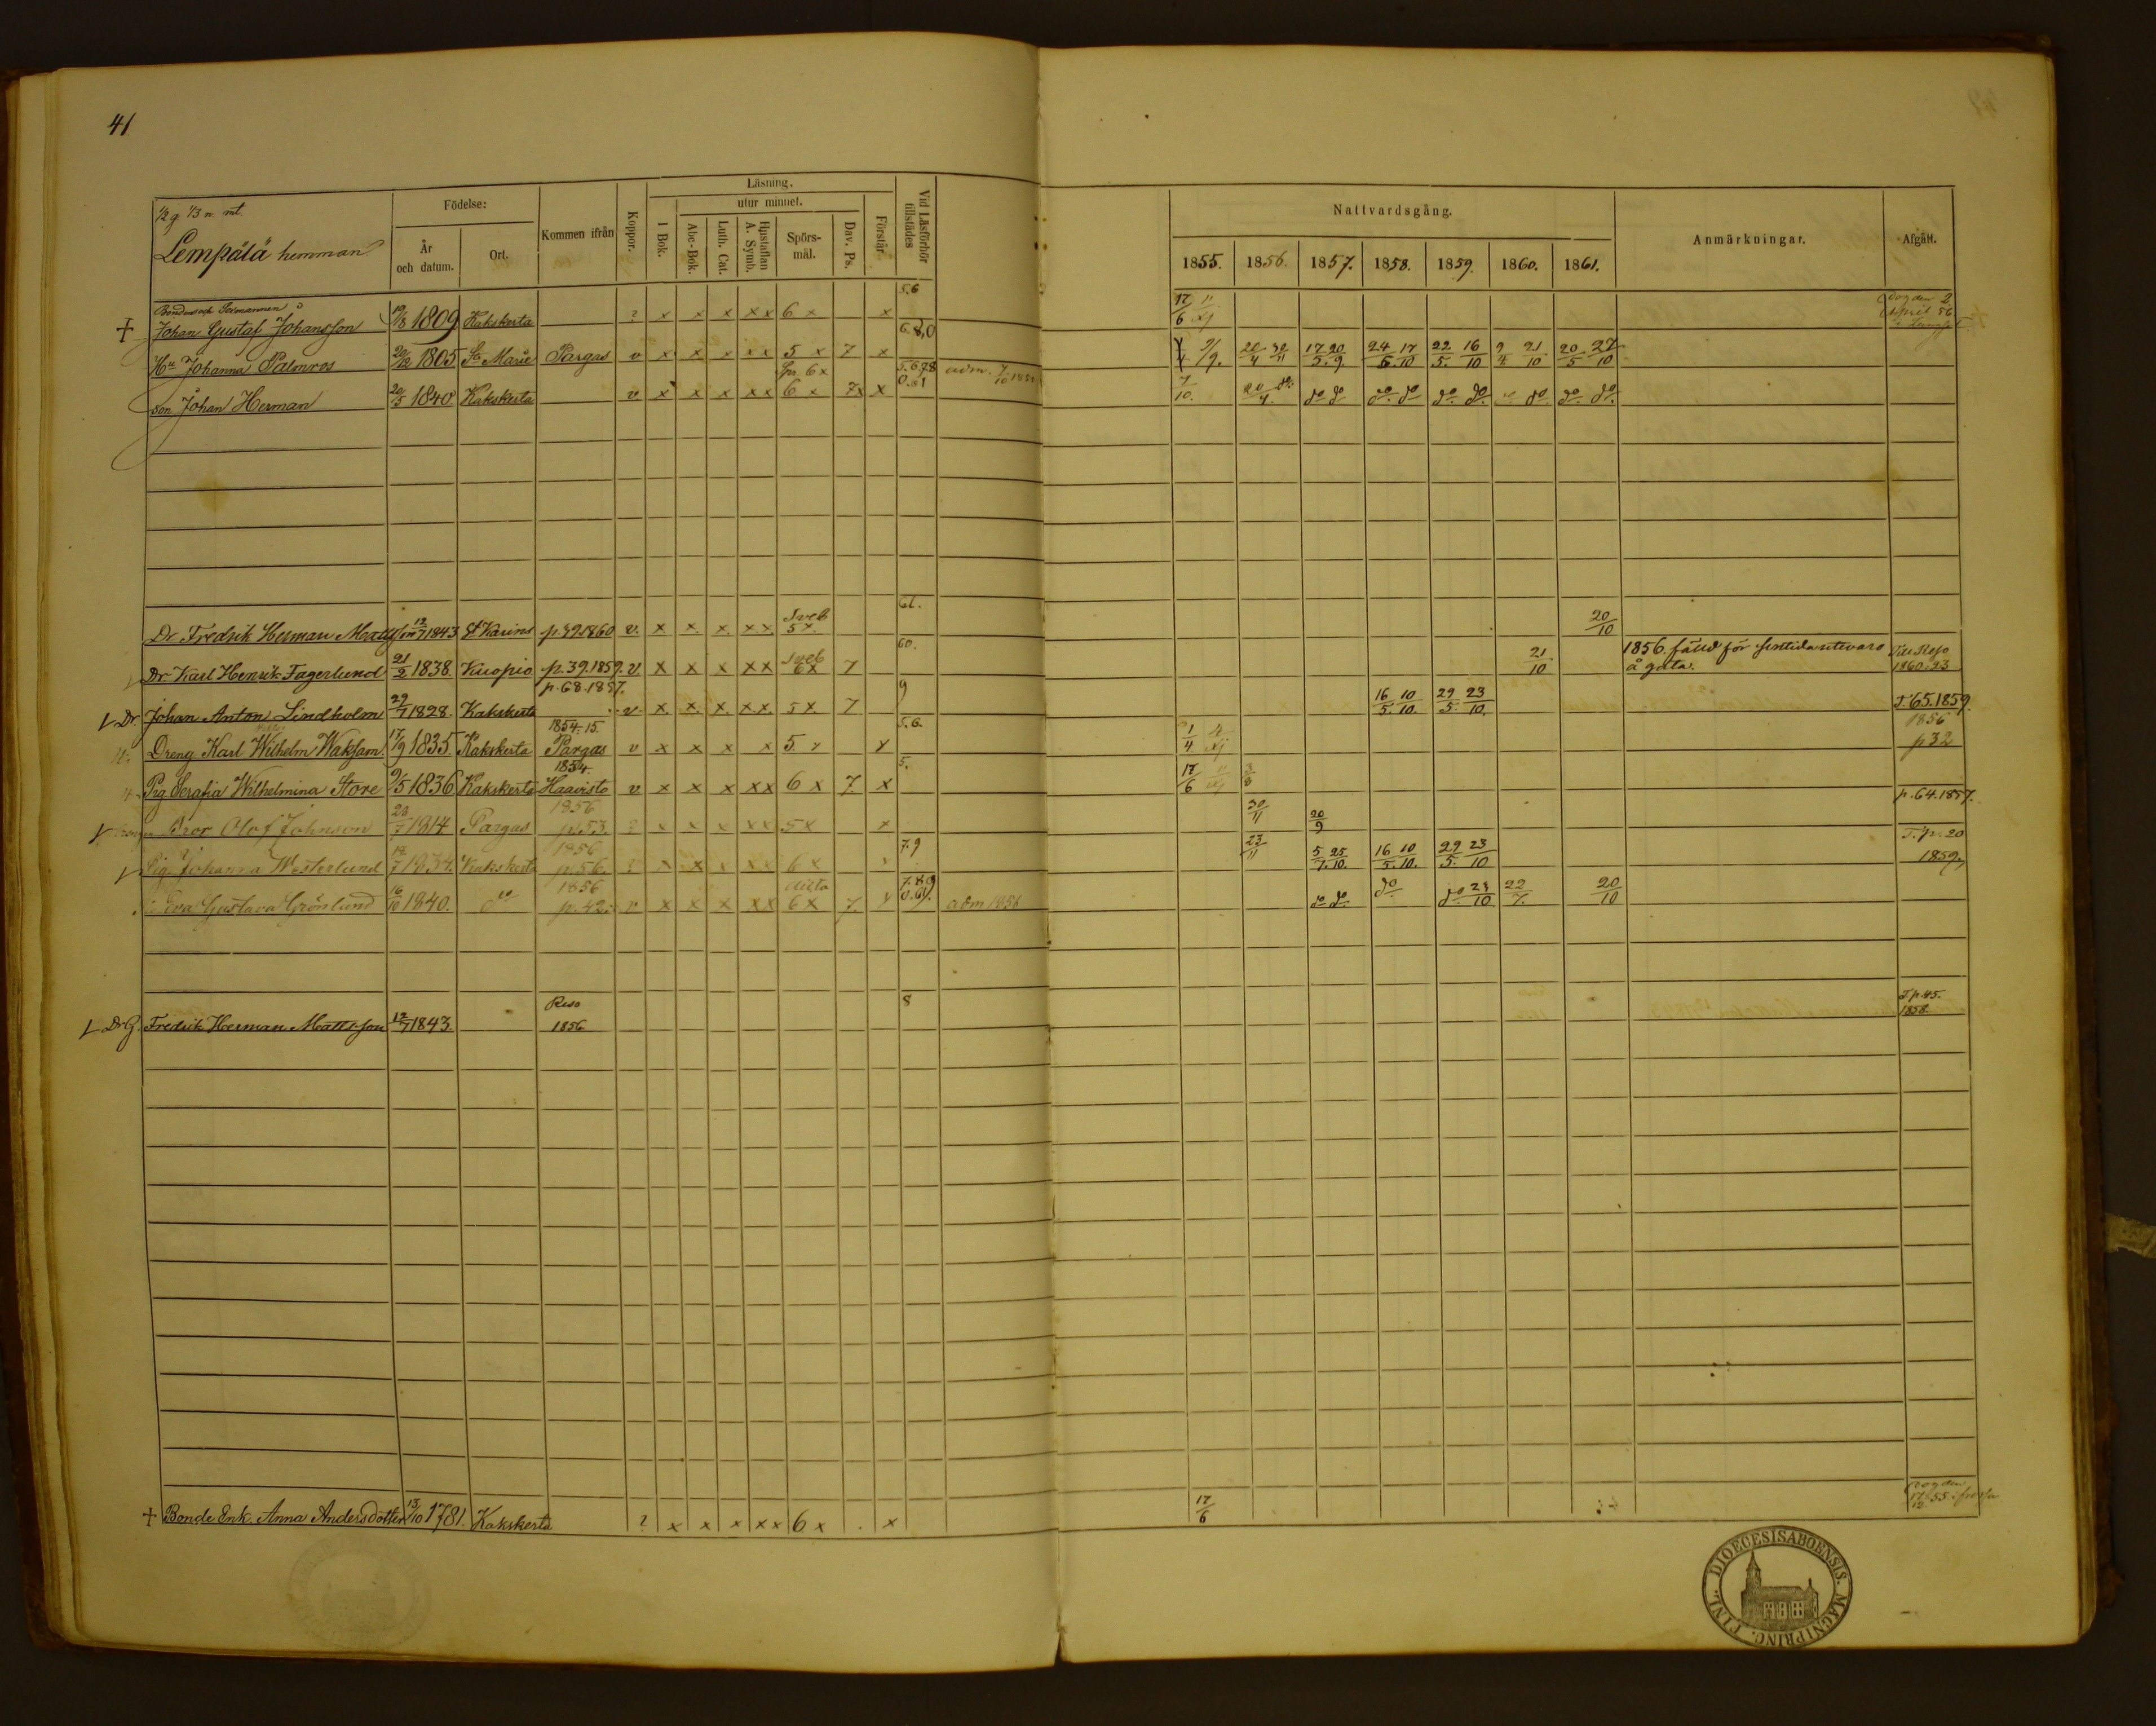 41
1/2 g 1/3 n. mt.
Lempälä hemman
Födelse:
År och datum.
Ort.
Kommen ifrån
Koppor.
Läsning.
I Bok.
utur minnet.
Abc-Bok.
Luth. Cat.
Hustaflan A. Symb.
Spörsmål.
Dav. Ps.
Förstår.
Vid Läsförhör tillstädes
Nattvardsgång.
1855. 1856. 1857. 1858. 1859. 1860. 1861.
Anmärkningar.
Afgått.
Bonden och
+ Johan Gustaf Johansson 19/8 1809 Kakskerta ? x x x x x 6 x x 5.6 17/6 Dog den 2 April 56
Hu Johanna Palmros 20/12 1805 St Marie Pargas v x x x x x 5 x 7 x 6.8,0 20/4 30/11 17/5. 20/9. 24/5. 17/10 22/5. 16/10 9/4 21/10 20/5 27/10
son Johan Herman 20/5 1840 Kakskerta v x x x x x 6 x 7 x x 5.6.7.8 0.61 adm. 7/10 7/10. 20/4. do do do do do do do do do do
Dr Fredrik Herman Mattsson 12/7 1843 St Karins p. 39.1860 v. x x x x x Sveb 5 x. 61. 20/10
Dr Karl Henrik Fagerlund 21/2 1838. Kuopio p. 39.1859. v. x x x x x Sveb 6 x 7 60. 21/10 1856. fälld för
å gata. Till Reso 1860. 23
Dr. Johan Anton Lindholm 29/7 1828. Kakskerta p. 68.1857. v. x. x. x. x x. 5 x. 7 9 16/5. 10/10. 29/5. 23/10. T. 65.1859.
Dreng Karl Wilhelm Waksam 17/9 1835. Kakskerta 1854-15. Pargas v x x x x 5. x x 5.6. 1/4 1856 p 32
Pig. Serafia Wilhelmina Store 9/5 1836 Kakskerta 1854. Haavisto v x x x x x 6 x 7 x 5. 17/6 3/8
Bror Olof Johnson 28/7 1814 Pargas 1856 p. 53. ? x x x x x 5 x x 30/11 20/9 p. 64.1857.
Pig. Johanna Westerlund 1834. Kakskerta 1856 p. 56. ? x x x x x 6 x x 7.9 23/11 5/7. 25/10. 16/5. 10/10. 29/5. 23/10 T. p. 20 1859.
Eva Gustava Grönlund 16/10 1840. do 1856 p. 42. v x x x x x 6 x 7. x 7.8.9 0.61. adm 1856 do do do do 23/10 22/7. 20/10
Dr G. Fredrik Herman Mattsson 12/7 1843. Reso 1856 8 T p. 45. 1858.
+ Bonde Enk. Anna Andersdotter 13/10 1781. Kakskerta ? x x x x x 6 x . x 17/6 Dog den 55
DIOECESIS ABOENSIS. MAGNI PRINC. FINL.